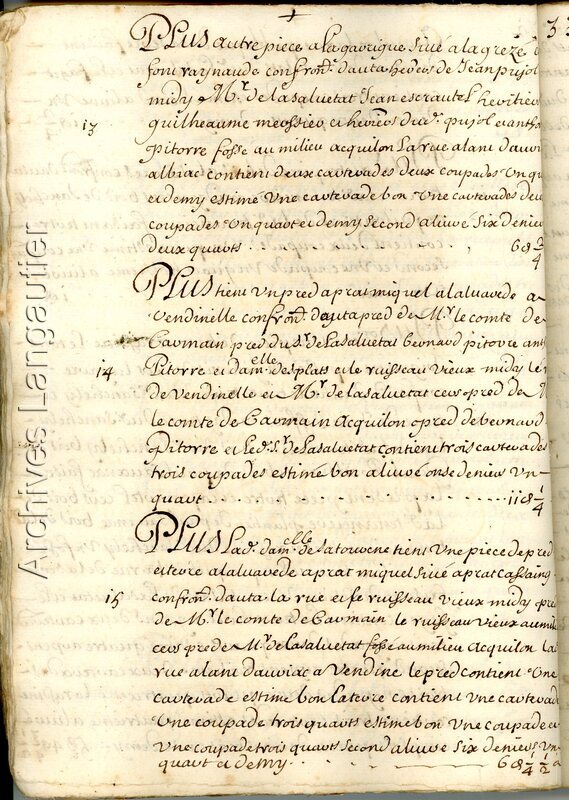 33
PLUS autre piece a la gavrigue sive a la greze
font raynaude confron. d'auta hereos de Jean pujol
midy Mr. de la saluetat Jean escrautel heritieu
13 guilheaume meossieu et hereos du d. pujol et anthe
pitorre fosse au milieu acquilon la rue alant dauvi
albiac contient deux cartevades deux coupades un qu
et demy estimé une cartevade bon une cartevade deu
coupades un quart et demy second alivré six denieu
deux quarts 6 ₰ 2/4
PLUS tient un pred a prat miquel a la luavede a
vendinille confron. dauta pred de Mr. le comte de
Caormain pred du sr. de Lasaluetat bernard pitorre ant
14 Pitorre et dam.elle desplats et le ruisseau vieux midy le
de Vendinelle et Mr. de lasaluetat cers pred de M
le comte de Caormain Acquilon o pred de bernard
Pitorre et led. sr. de Lasaluetat contient trois cartevades
trois coupades estimé bon alivré onse denieu un
quart 11 ₰ 1/4
PLUS Lad. dam.elle de Latouvene tient une piece de pred
et terre a laluavede a prat miquel sive a prat cassaing
15 confron. dauta la rue et le ruisseau vieux midy pred
de Mr. le comte de Caormain le ruisseau vieux au mili
cers pred de Mr. de lasaluetat fossé au milieu Acquilon la
rue alant dauviac a Vendine le pred contient une
cartevade estimé bon la terre contient une cartevad
une coupade trois quarts estimé bon une coupade et
une coupade trois quarts second alivré six denieus un
quart et demy 6 ₰ 1/4 1/2
Archives Langautier